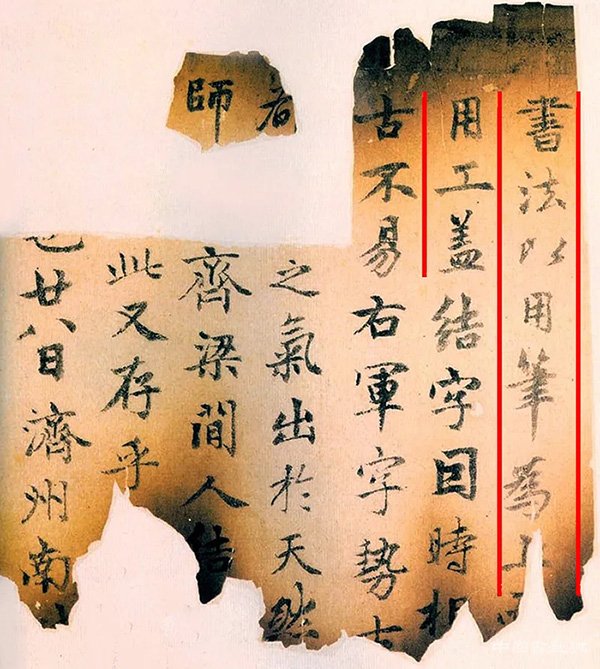 書法以用筆為上
用工盖結字囙時相
古不易右軍字勢古
之氣出於天然
師齊梁間人結
此又存乎
也廿八日濟州南